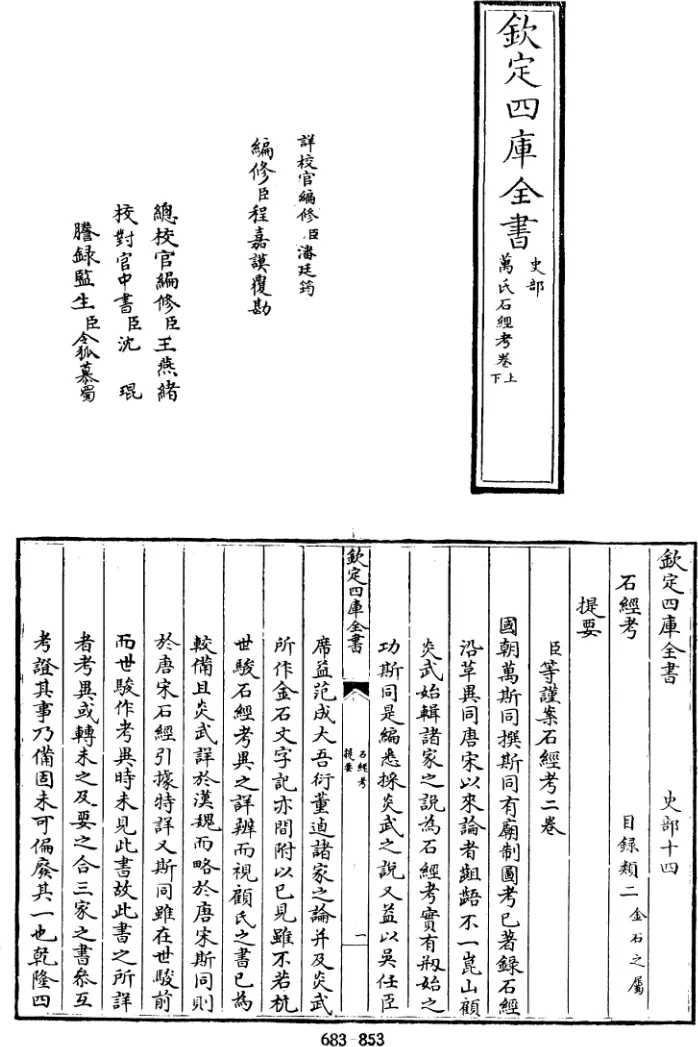 欽定四庫全書
史部
萬氏石經考卷上
下
詳校官編修臣潘廷筠
編修臣程嘉謨覆勘
總校官編修臣王燕緒
校對官中書臣沈琨
謄録監生臣令狐慕蜀
欽定四庫全書 史部十四
石經考 目録類二金石之屬
提要
臣等謹案石經考二卷
國朝萬斯同撰斯同有廟制圖考已著録石經
沿革異同唐宋以來論者齟齬不一崑山顧
炎武始輯諸家之說為石經考實有剏始之
功斯同是編悉採炎武之說又益以吳任臣
欽定四庫全書
石經考
提要
一
席益范成大吾衍董逌諸家之論并及炎武
所作金石文字記亦間附以已見雖不若杭
世駿石經考異之詳辨而視顧氏之書已為
較備且炎武詳於漢魏而略於唐宋斯同則
於唐宋石經引據特詳又斯同雖在世駿前
而世駿作考異時未見此書故此書之所詳
者考異或轉未之及要之合三家之書參互
考證其事乃備固未可偏廢其一也乾隆四
683-853